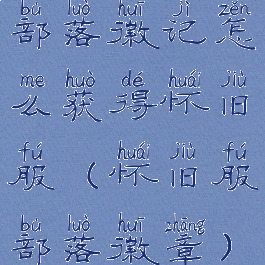 bù luò huī jì zěn
部落徽记怎
me huò dé huái jiù
么获得怀旧
fú huái jiù fú
服(怀旧服
bù luò huī zhāng
部落徽章)